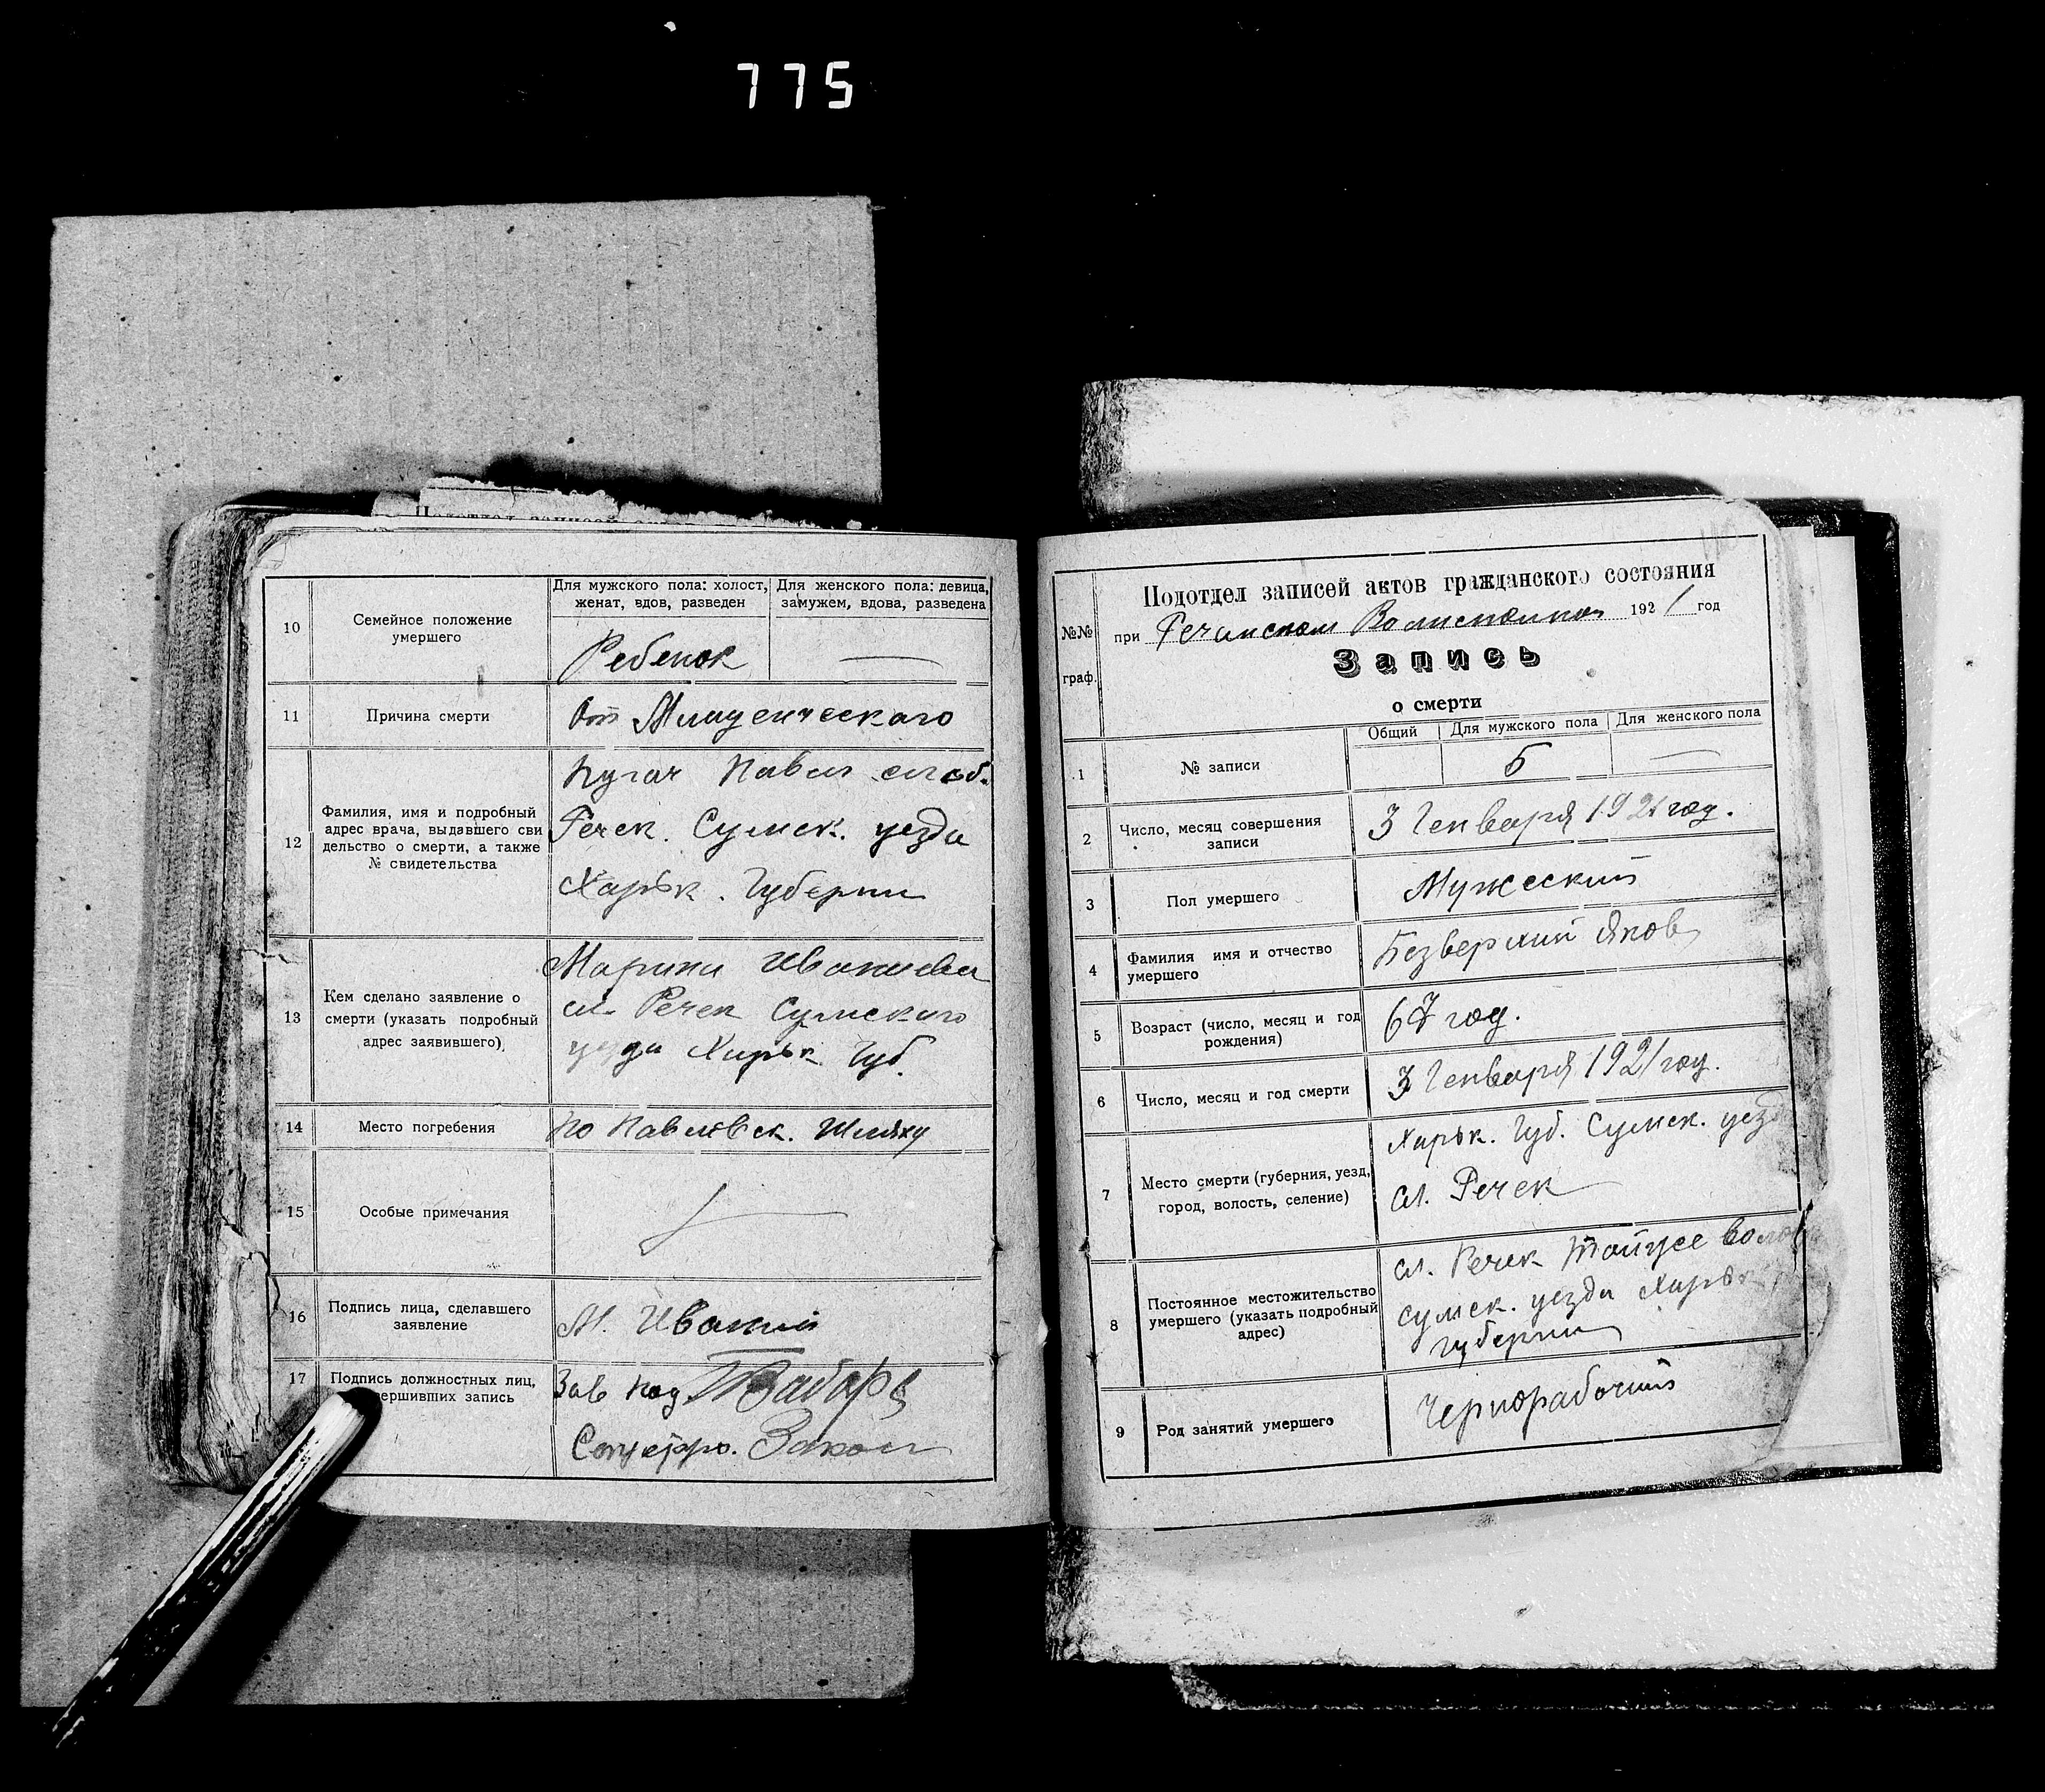 775
10
Семейное положение
умершего
Для мужского пола: холост,
женат, вдов, разведен
Для женского пола: девица,
замужем, вдова, разведена
Ребенок
11
Причина смерти
От Младенческого
12
Фамилия, имя и подробный
адрес врача, выдавшего сви
дельство о смерти, а также
№ свидетельства
Пугач Павел слоб.
Речек. Сумск. уезда
Харьк. Губерни
13
Кем сделано заявление о
смерти (указать подробный
адрес заявившего)
сл. Речек Сумского
уезда Харьк Губ.
14
Место погребения
по Павловск. Шляху
15
Особые примечания
16
Подпись лица, сделавшего
заявление
М.
17
Подпись должностных лиц,
ершивших запись
Зав под
Подотдел записей актов гражданского состояния
№№
граф.
при Речанском 192 1 год
Запись
о смерти
Общий
Для мужского пола
Для женского пола
1
№ записи
5
2
Число, месяц совершения
записи
3 Генваря 1921 год.
3
Пол умершего
Мужеский
4
Фамилия имя и отчество
умершего
Безверхий Яков
5
Возраст (число, месяц и год
рождения)
67 год.
6
Число, месяц и год смерти
3 Генваря 1921 год.
7
Место смерти (губерния, уезд,
город, волость, селение)
Харьк. Губ. Сумск. уезд
сл. Речек
8
Постоянное местожительство
умершего (указать подробный
адрес)
сл. Речек тойже
сумск. уезда Харьк
губернии
9
Род занятий умершего
Чернорабочий